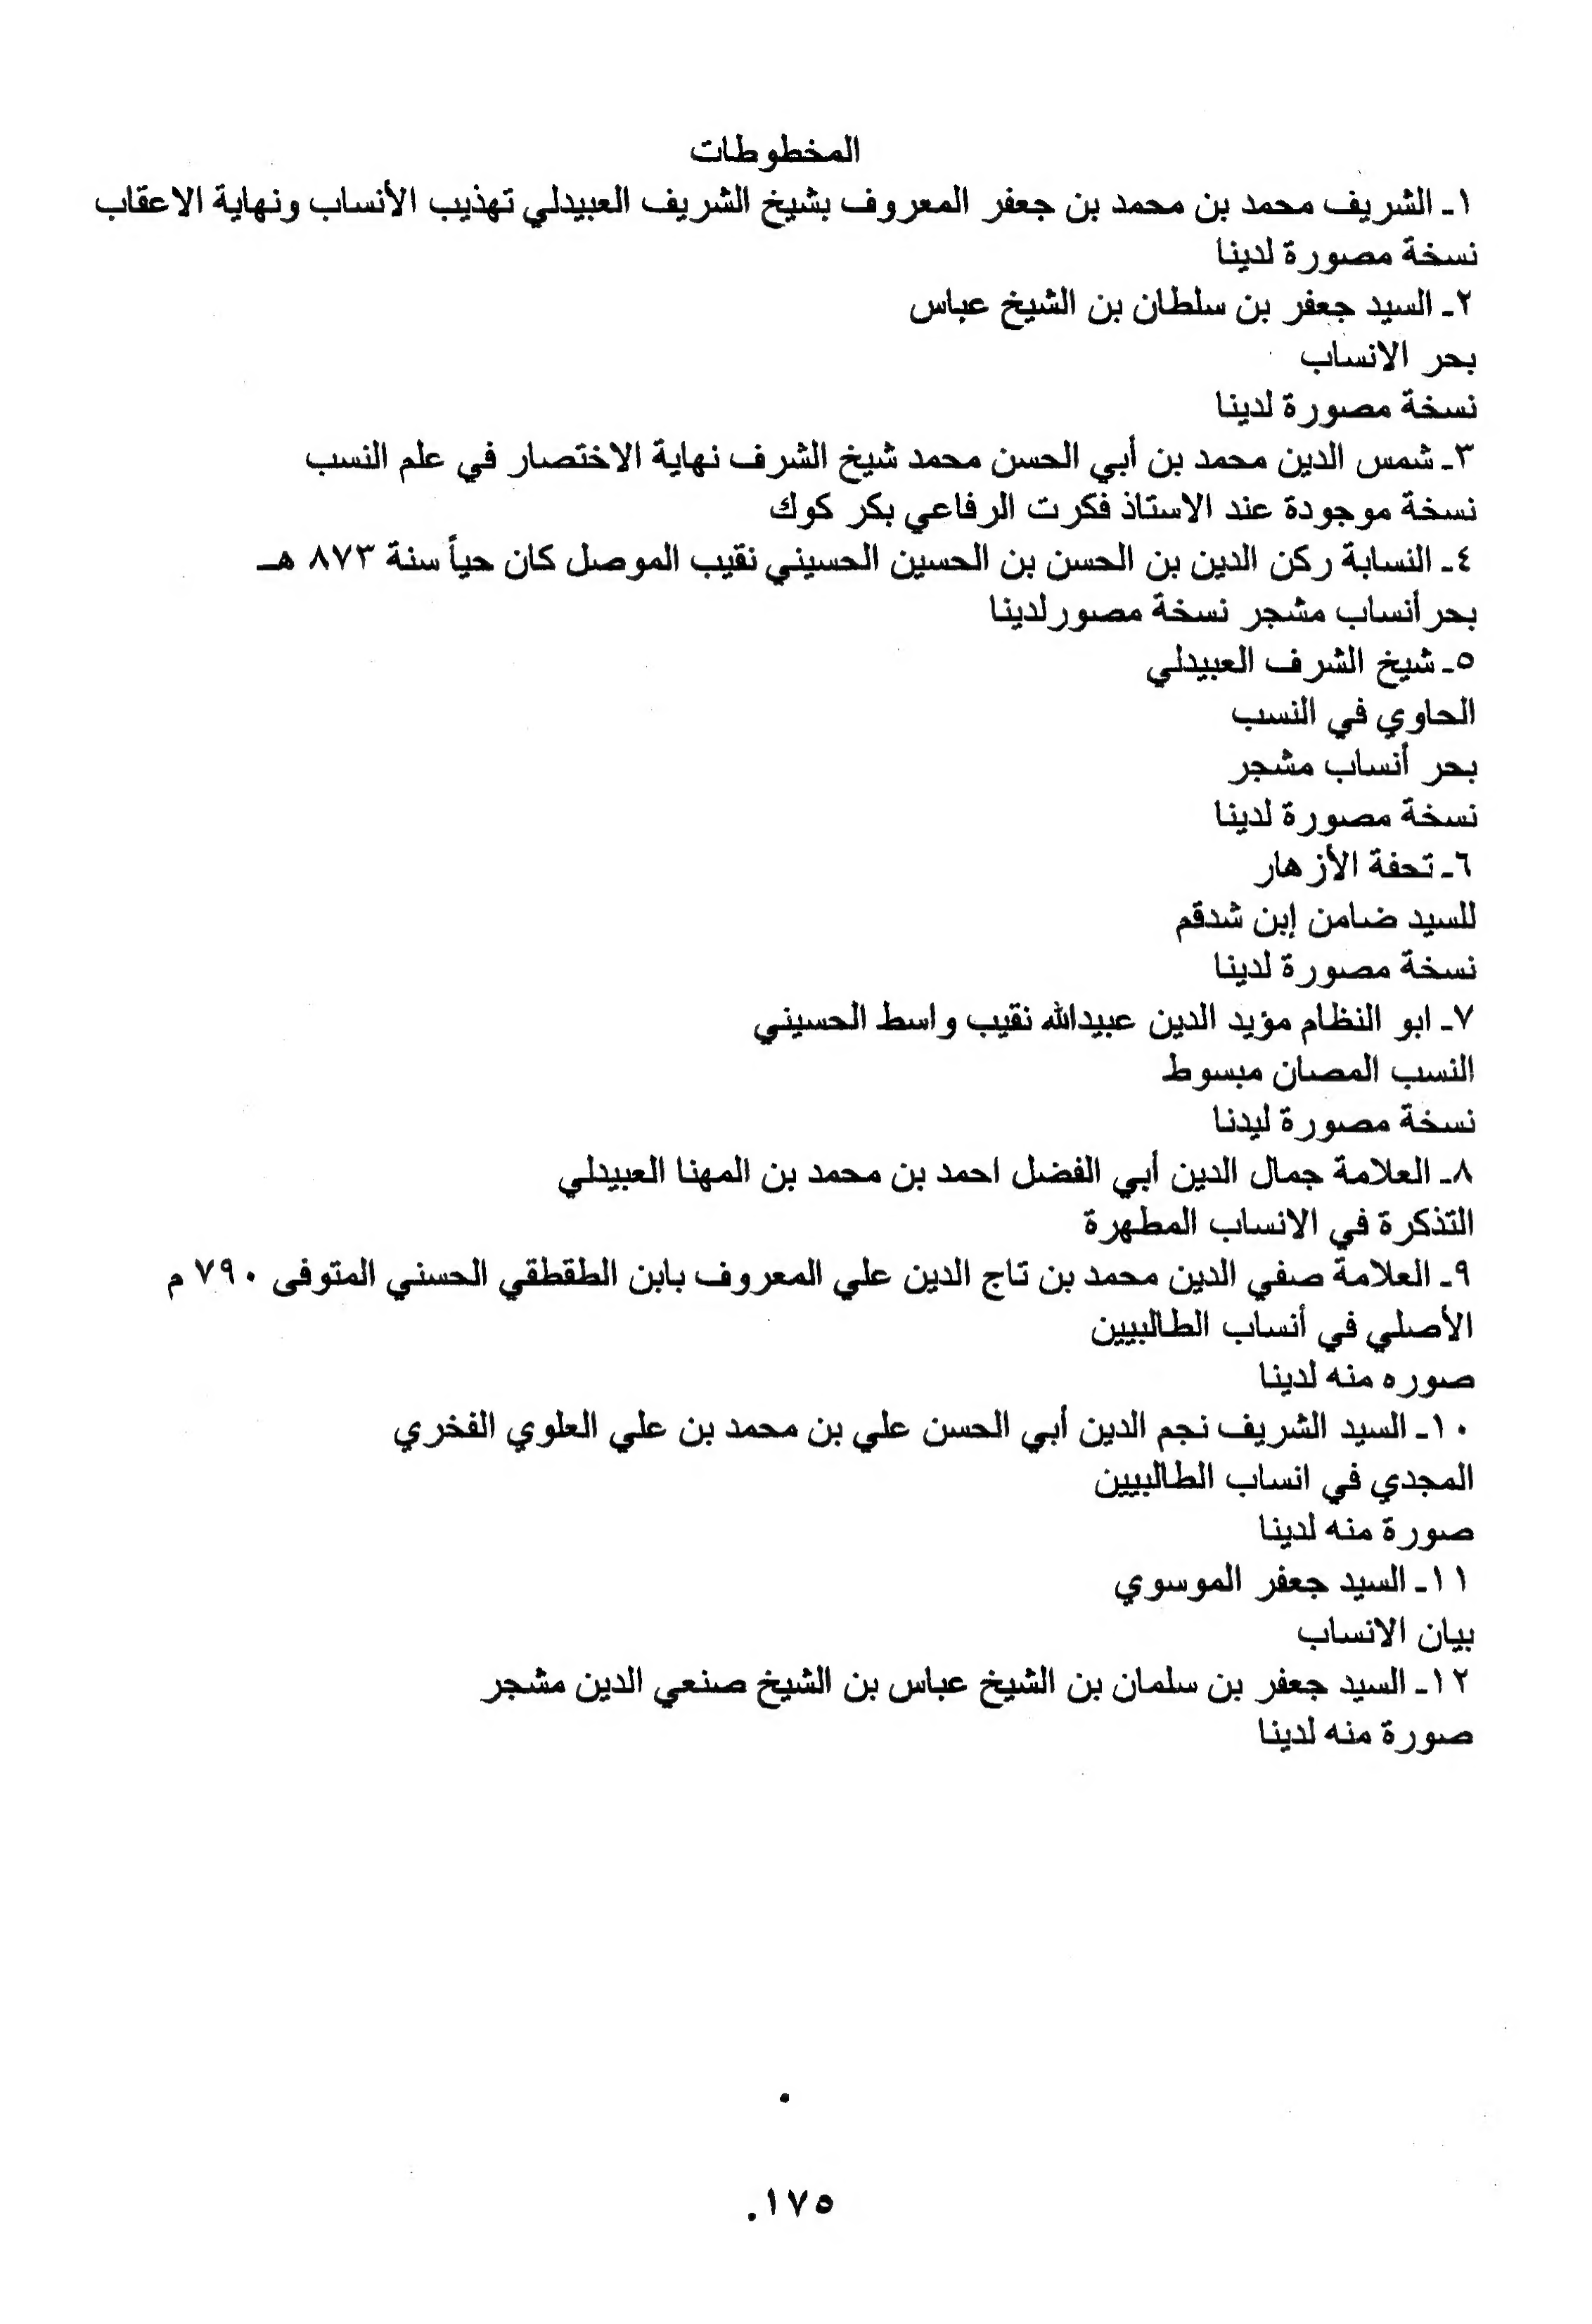 المخطوطات
١ـ الشريف محمد بن محمد بن جعفر المعروف بشيخ الشريف العبيدلي تهذيب الأنساب ونهاية الاعقاب
نسخة مصورة لدينا
٢ـ السيد جعفر بن سلطان بن الشيخ عباس
بحر الانساب
نسخة مصورة لدينا
٣ـ شمس الدين محمد بن أبي الحسن محمد شيخ الشرف نهاية الاختصار في علم النسب
نسخة موجودة عند الاستاذ فكرت الرفاعي بكر كوك
٤ـ النسابة ركن الدين بن الحسن بن الحسين الحسيني نقيب الموصل كان حياً سنة ٨٧٣ هـ
بحر أنساب مشجر نسخة مصور لدينا
٥ـ شيخ الشرف العبيدلي
الحاوي في النسب
بحر أنساب مشجر
نسخة مصورة لدينا
٦ـ تحفة الأزهار
للسيد ضامن إبن شدقم
نسخة مصورة لدينا
٧ـ ابو النظام مؤيد الدين عبيدالله نقيب واسط الحسيني
النسب المصان مبسوط
نسخة مصورة ليدنا
٨ـ العلامة جمال الدين أبي الفضل احمد بن محمد بن المهنا العبيدلي
التذكرة في الانساب المطهرة
٩ـ العلامة صفي الدين محمد بن تاج الدين علي المعروف بابن الطقطقي الحسني المتوفى ٧٩٠ م
الأصلي في أنساب الطالبيين
صوره منه لدينا
١٠ـ السيد الشريف نجم الدين أبي الحسن علي بن محمد بن علي العلوي الفخري
المجدي في انساب الطالبيين
صورة منه لدينا
١١ـ السيد جعفر الموسوي
بيان الانساب
١٢ـ السيد جعفر بن سلمان بن الشيخ عباس بن الشيخ صنعي الدين مشجر
صورة منه لدينا
١٧٥.